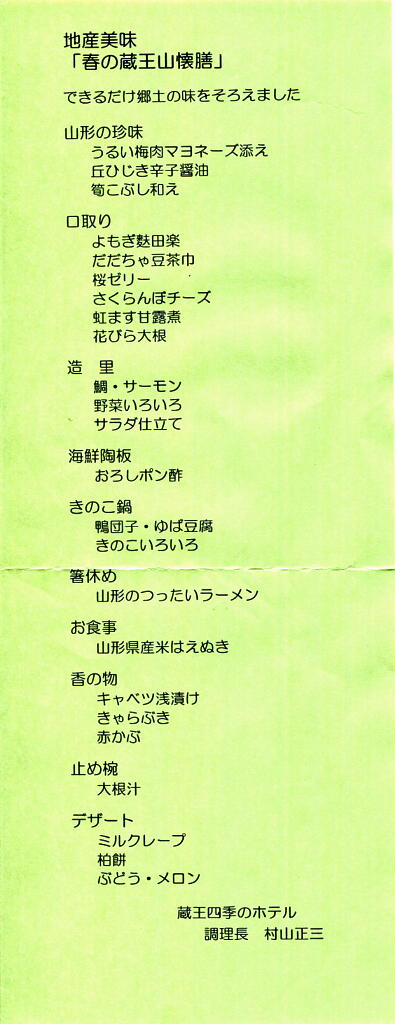 地産美味
「春の蔵王山懐膳」
できるだけ郷土の味をそろえました
山形の珍味
うるい梅肉マヨネーズ添え
丘ひじき辛子醤油
筍こぶし和え
口取り
よもぎ麩田楽
だだちゃ豆茶巾
桜ゼリー
さくらんぼチーズ
虹ます甘露煮
花びら大根
造　里
鯛・サーモン
野菜いろいろ
サラダ仕立て
海鮮陶板
おろしポン酢
きのこ鍋
鴨団子・ゆば豆腐
きのこいろいろ
箸休め
山形のつったいラーメン
お食事
山形県産米はえぬき
香の物
キャベツ浅漬け
きゃらぶき
赤かぶ
止め椀
大根汁
デザート
ミルクレープ
柏餅
ぶどう・メロン
蔵王四季のホテル
調理長　村山正三